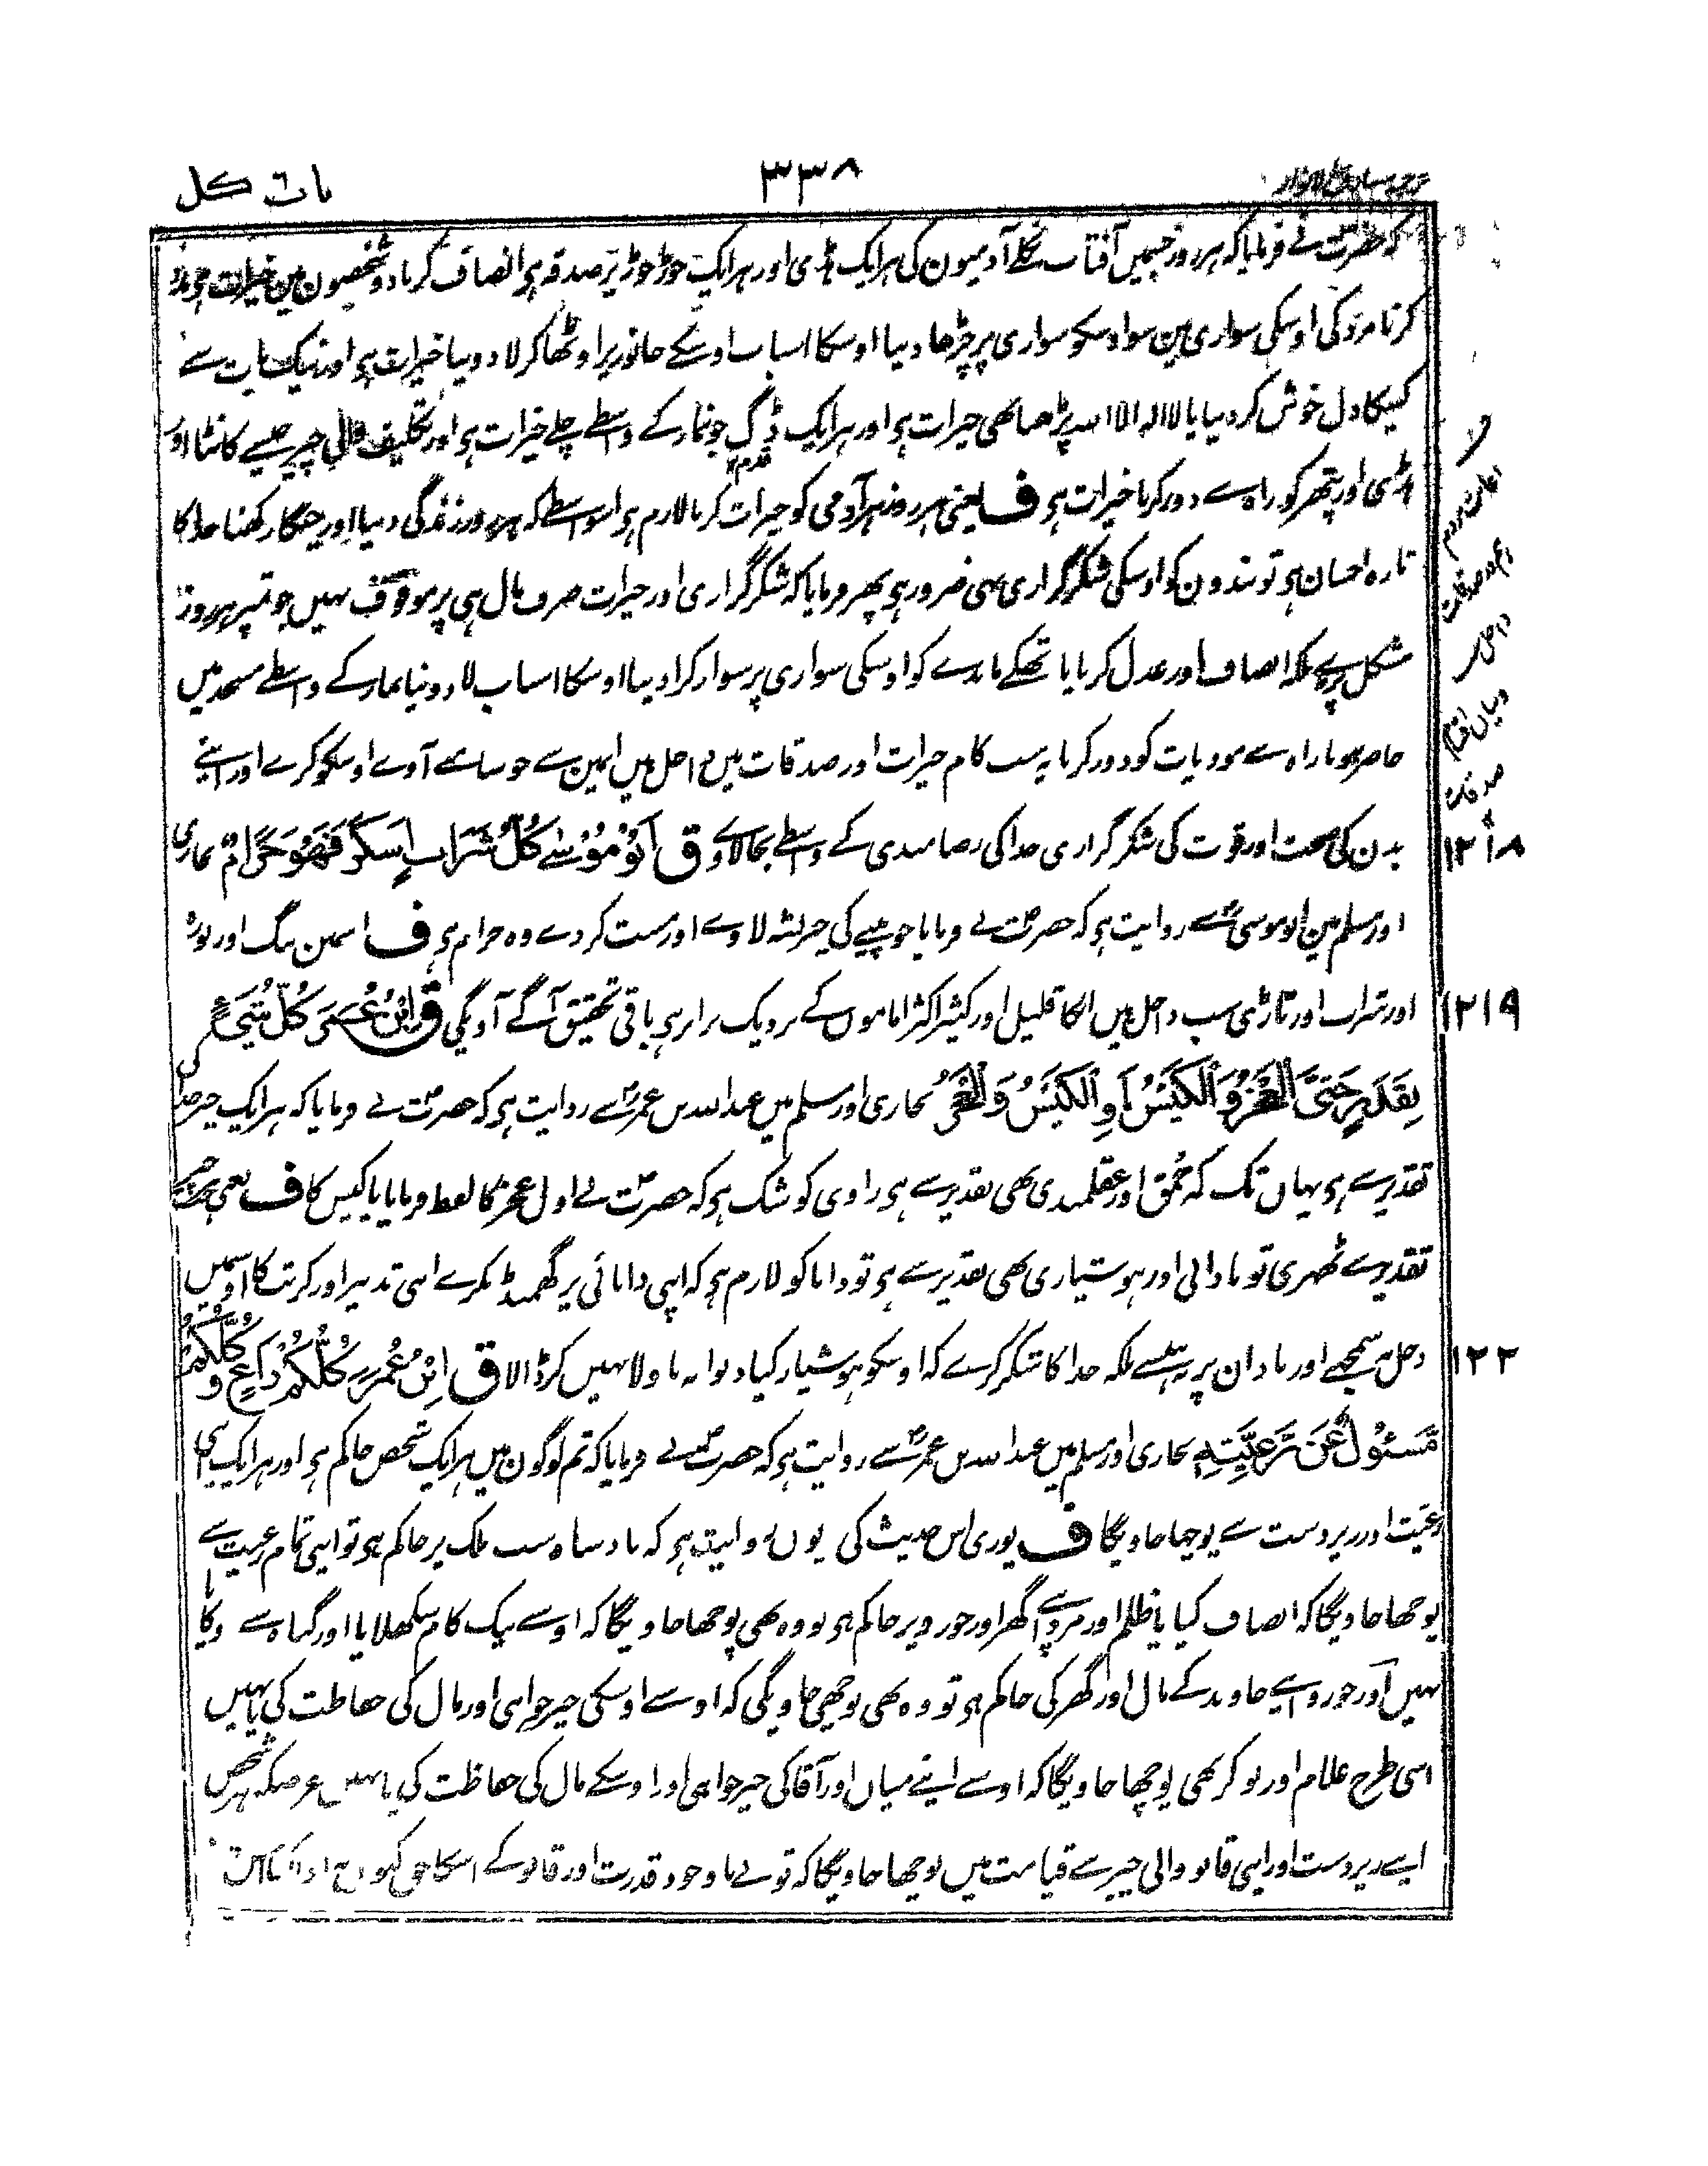 باب کل
۳۳۸
کہ حضرت نے فرمایا کہ ہر روز جسمیں آفتاب نکلے آدمیون کی ہر ایک ہڈی اور ہر ایک جوڑ جوڑ پر صدقہ ہی انصاف کرنا دو شخصون مین خیرات ہی مدد
کرنا مرد کی اوسکی سواری مین سو اوسکو سواری پر چڑھا دینا یا اوسکا اسباب اوسکے جانور پر اوٹھا کر لاد دینا خیرات ہی اور نیک بات سے
کسیکا دل خوش کر دینا یا لا الہ الا اللہ پڑھنا بھی خیرات ہی اور ہر ایک ڈگ جو نماز کے واسطے چلے خیرات ہی اور تکلیف والی چیز جیسے کانٹا اور
قدم
ہڈی اور پتھر کو راہ سے دور کرنا خیرات ہی ف یعنی ہر روز ہر آدمی کو خیرات کرنا لازم ہی اسواسطے کہ ہر روز زندگی دینا اور چنگا رکھنا خدا کا
تازہ احسان ہی تو بندون کو اوسکی شکر گزاری بھی ضرور ہی پھر فرمایا کہ شکر گزاری اور خیرات صرف مال ہی پر موقوف نہیں جو تمپر ہر روز
مشکل پڑے بلکہ انصاف اور عدل کرنا یا تھکے ماندے کو اوسکی سواری پر سوار کرا دینا اوسکا اسباب لاد دینا نماز کے واسطے مسجد میں
حاضر ہونا راہ سے موذیات کو دور کرنا یہ سب کام خیرات اور صدقات میں داخل ہیں انمین سے جو سامنے آوے اوسکو کرے اور اپنے
بدن کی صحت اور قوت کی شکر گزاری خدا کی رضامندی کے واسطے بجا لاوے ق اَبُوْ مُوْسٰے کُلُّ شَرَابٍ اَسْکَرَ فَهُوَ حَرَامٌ بخاری
۱۲۱۸
اور مسلم مین ابو موسی سے روایت ہی کہ حضرت نے فرمایا جو پینے کی چیز نشہ لاوے اور مست کر دے وہ حرام ہی ف اسمین بنگ اور بوزہ
اور شراب اور تاڑی سب داخل ہیں انکا قلیل اور کثیر اکثر اماموں کے نزدیک برابر ہی باقی تحقیق آگے آویگی ق اِبْنُ عُمَرَ کُلُّ شَیْءٍ
۱۲۱۹
بِقَدَرٍ حَتّٰی الْعَجْزُ وَالْکَیْسُ اَوِ الْکَیْسُ وَالْعَجْزُ بخاری اور مسلم میں عبد اللہ بن عمر سے روایت ہی کہ حضرت نے فرمایا کہ ہر ایک چیز خدا کی
تقدیر سے ہی یہاں تک کہ حُمق اور عقلمندی بھی تقدیر سے ہی راوی کو شک ہی کہ حضرت نے اول عجز کا لفظ فرمایا یا کیس کا ف یعنی ہر چیز
تقدیر سے ٹھہری تو نادانی اور ہوشیاری بھی تقدیر سے ہی تو دانا کو لازم ہی کہ اپنی دانائی پر گھمنڈ نکرے اپنی تدبیر اور کرتب کا اوسمیں
دخل نہ سمجھے اور نادان پر نہ ہنسے بلکہ خدا کا شکر کرے کہ اوسکو ہوشیار کیا دیوانہ باولا نہیں کر ڈالا ق اِبْنُ عُمَرَ کُلُّکُمْ رَاعٍ وَ کُلُّکُمْ
۱۲۲۰
مَسْئُوْلٌ عَنْ رَعِیَّتِہٖ بخاری اور مسلم میں عبد اللہ بن عمر سے روایت ہی کہ حضرت نے فرمایا کہ تم لوگون میں ہر ایک شخص حاکم ہی اور ہر ایک اپنی
رعیت اور زیردست سے پوچھا جاویگا ف پوری اس حدیث کی یوں روایت ہی کہ بادشاہ سب ملک پر حاکم ہی تو اپنی تمام رعیت سے
پوچھا جاویگا کہ انصاف کیا یا ظلم اور مرد اپنے گھر اور جورو پر حاکم ہی تو وہ بھی پوچھا جاویگا کہ اونسے نیک کام سکھلایا اور گناہ سے روکا یا
نہیں اور جورو اپنے خاوند کے مال اور گھر کی حاکم ہی تو وہ بھی پوچھی جاویگی کہ اوسنے اوسکی خیر خواہی اور مال کی حفاظت کی یا نہیں
اسی طرح غلام اور نوکر بھی پوچھا جاویگا کہ اوسنے اپنے میاں اور آقا کی خیر خواہی اور اوسکے مال کی حفاظت کی یا نہیں غرضکہ ہر شخص
اپنے زیردست اور اپنی قابو والی چیز سے قیامت میں پوچھا جاویگا کہ تو نے باوجود قدرت اور قابو کے اسکا حق کیوں